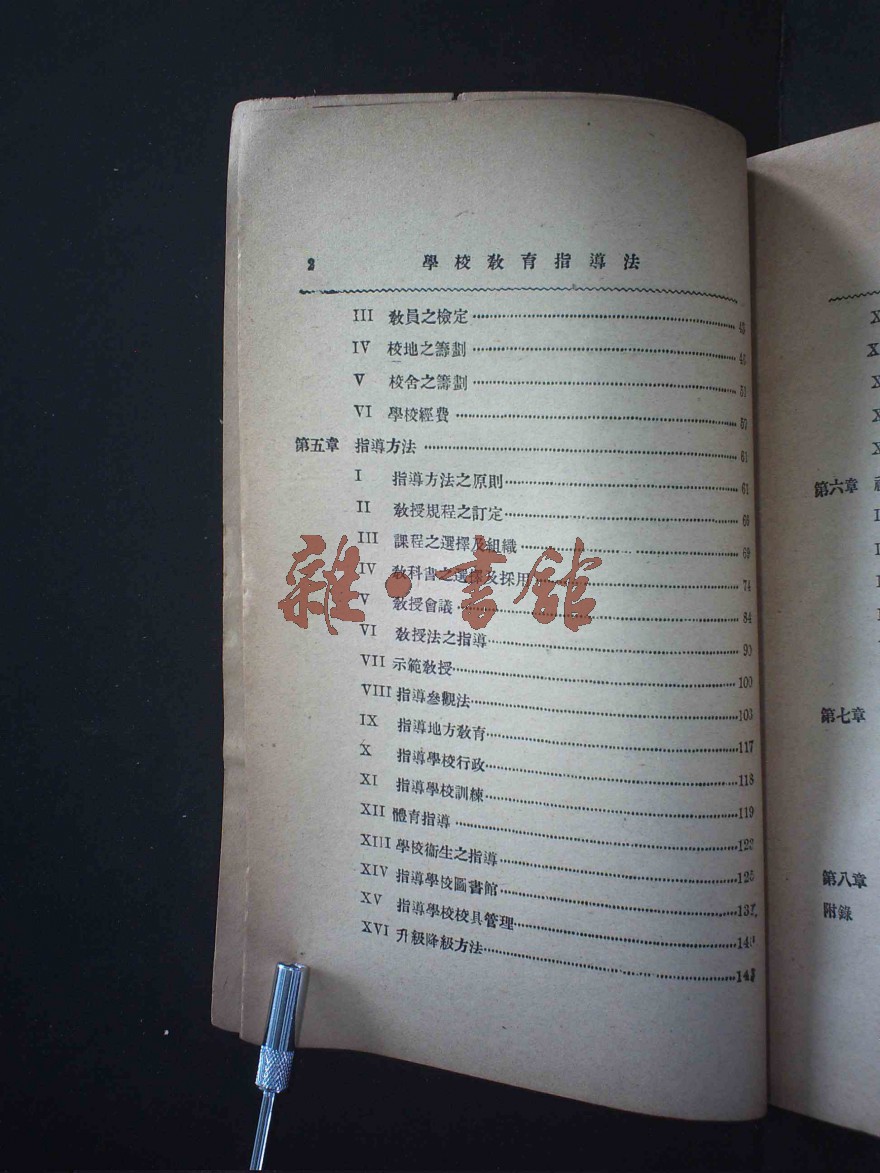 2 學校教育指導法
III 教員之檢定 43
IV 校地之籌劃
V 校舍之籌劃
VI 學校經費
第五章 指導方法 61
I 指導方法之原則 61
II 教授規程之訂定 66
III 課程之選擇及組織 69
IV 教科書之選擇及採用 74
V 教授會議 84
VI 教授法之指導
VII 示範教授 100
VIII 指導參觀法 103
IX 指導地方教育 117
X 指導學校行政 118
XI 指導學校訓練 119
XII 體育指導 122
XIII 學校衞生之指導 125
XIV 指導學校圖書館 137
XV 指導學校校具管理
XVI 升級降級方法 143
雜·書館
第六章
第七章
第八章
附錄